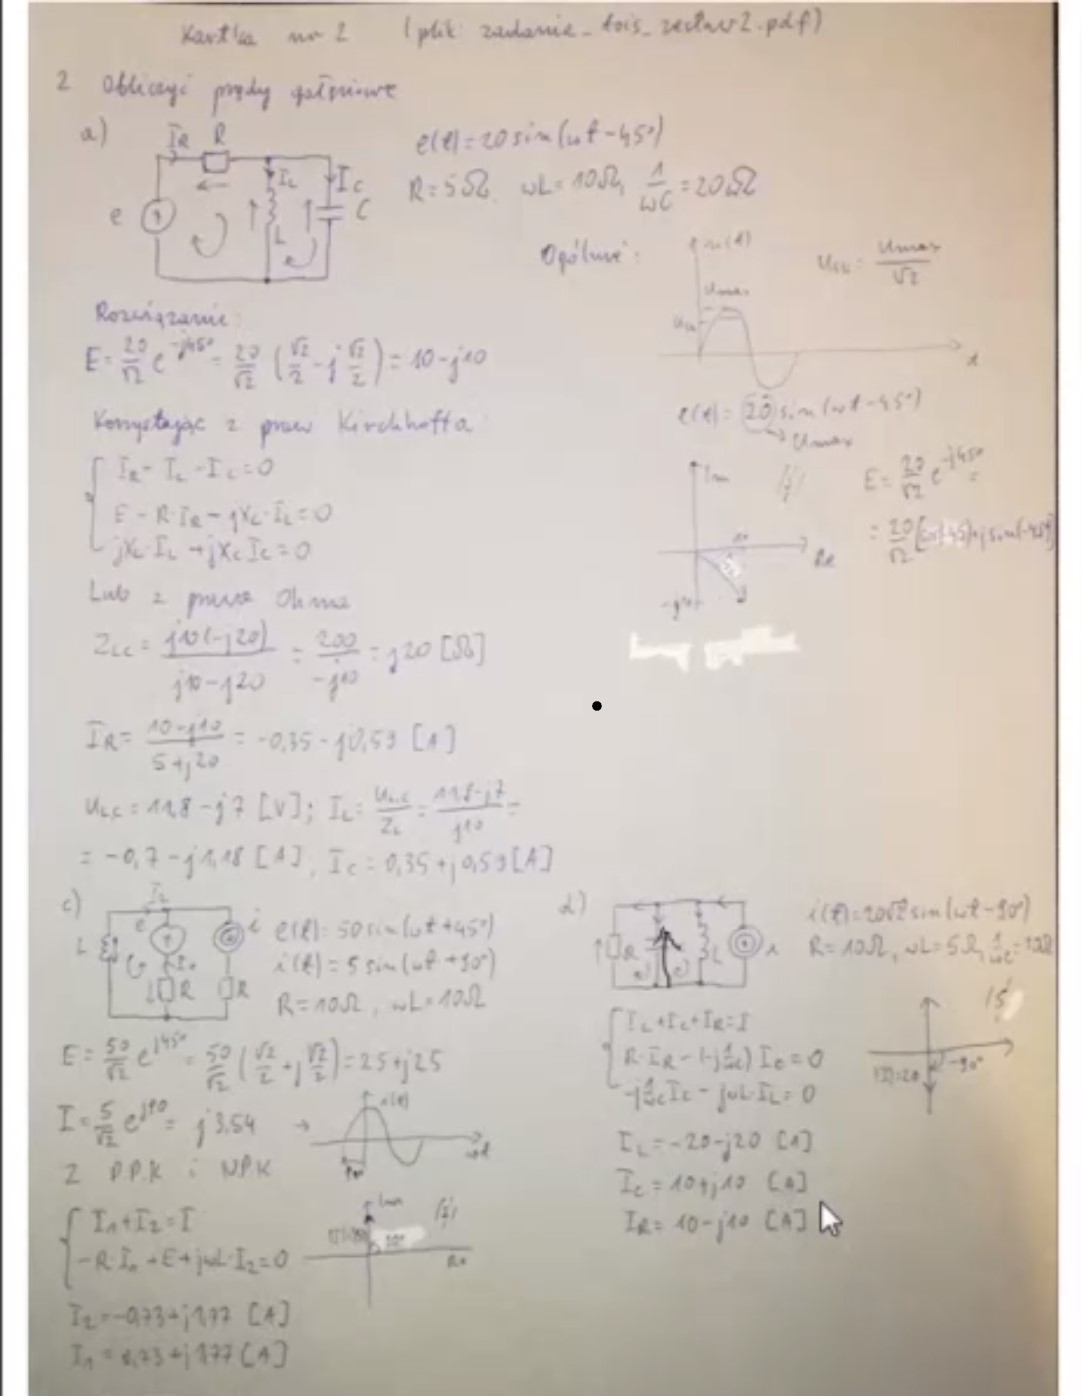 Kartka nr 2 (plik: zadanie_tois_zestaw2.pdf)
2 Obliczyć prądy gałęziowe
a)
I_R R
I_L
I_C
e
L
C
e(t)=20sin(ωt-45°)
R=5Ω, ωL=10Ω, 1/ωC=20Ω
Ogólnie:
u(t)
Umax
Usk
t
Usk = Umax/√2
Rozwiązanie:
E=20/√2 e^-j45° = 20/√2 (√2/2 - j√2/2) = 10-j10
e(t)=20sin(ωt-45°)
→ Umax
Korzystając z praw Kirchhoffa:
I_R - I_L - I_C = 0
E - R·I_R - jX_L·I_L = 0
jX_L·I_L + jX_C I_C = 0
Im
10
Re
-j10
E = 20/√2 e^-j45° =
= 20/√2 [cos(-45)+jsin(-45°)]
Lub z prawa Ohma
Z_LC = j10(-j20)/j10-j20 = 200/-j10 = j20 [Ω]
I_R = 10-j10/5+j20 = -0,35-j0,59 [A]
U_LC = 11,8-j7 [V]; I_L = U_LC/Z_L = 11,8-j7/j10 =
= -0,7-j1,18 [A], I_C = 0,35+j0,59 [A]
c)
I_2
L
e
i
R
R
e(t)=50sin(ωt+45°)
i(t)=5sin(ωt+90°)
R=10Ω, ωL=10Ω
E=50/√2 e^j45° = 50/√2 (√2/2 + j√2/2) = 25+j25
I=5/√2 e^j90 = j3,54 →
ωt
Z P.P.K i NPK
I_1+I_2=I
-R·I_1+E+jωL·I_2=0
Im
Re
I_2=-0,73+j1,77 [A]
I_1=0,73+j1,77 [A]
d)
R
L
i(t)=20√2sin(ωt-90°)
R=10Ω, ωL=5Ω, 1/ωC=10Ω
I_L+I_C+I_R=I
R·I_R-(-j1/ωC)I_C=0
-j1/ωC I_C - jωL·I_L=0
|I|=20
-90°
I_L=-20-j20 [A]
I_C=10+j10 [A]
I_R=10-j10 [A]